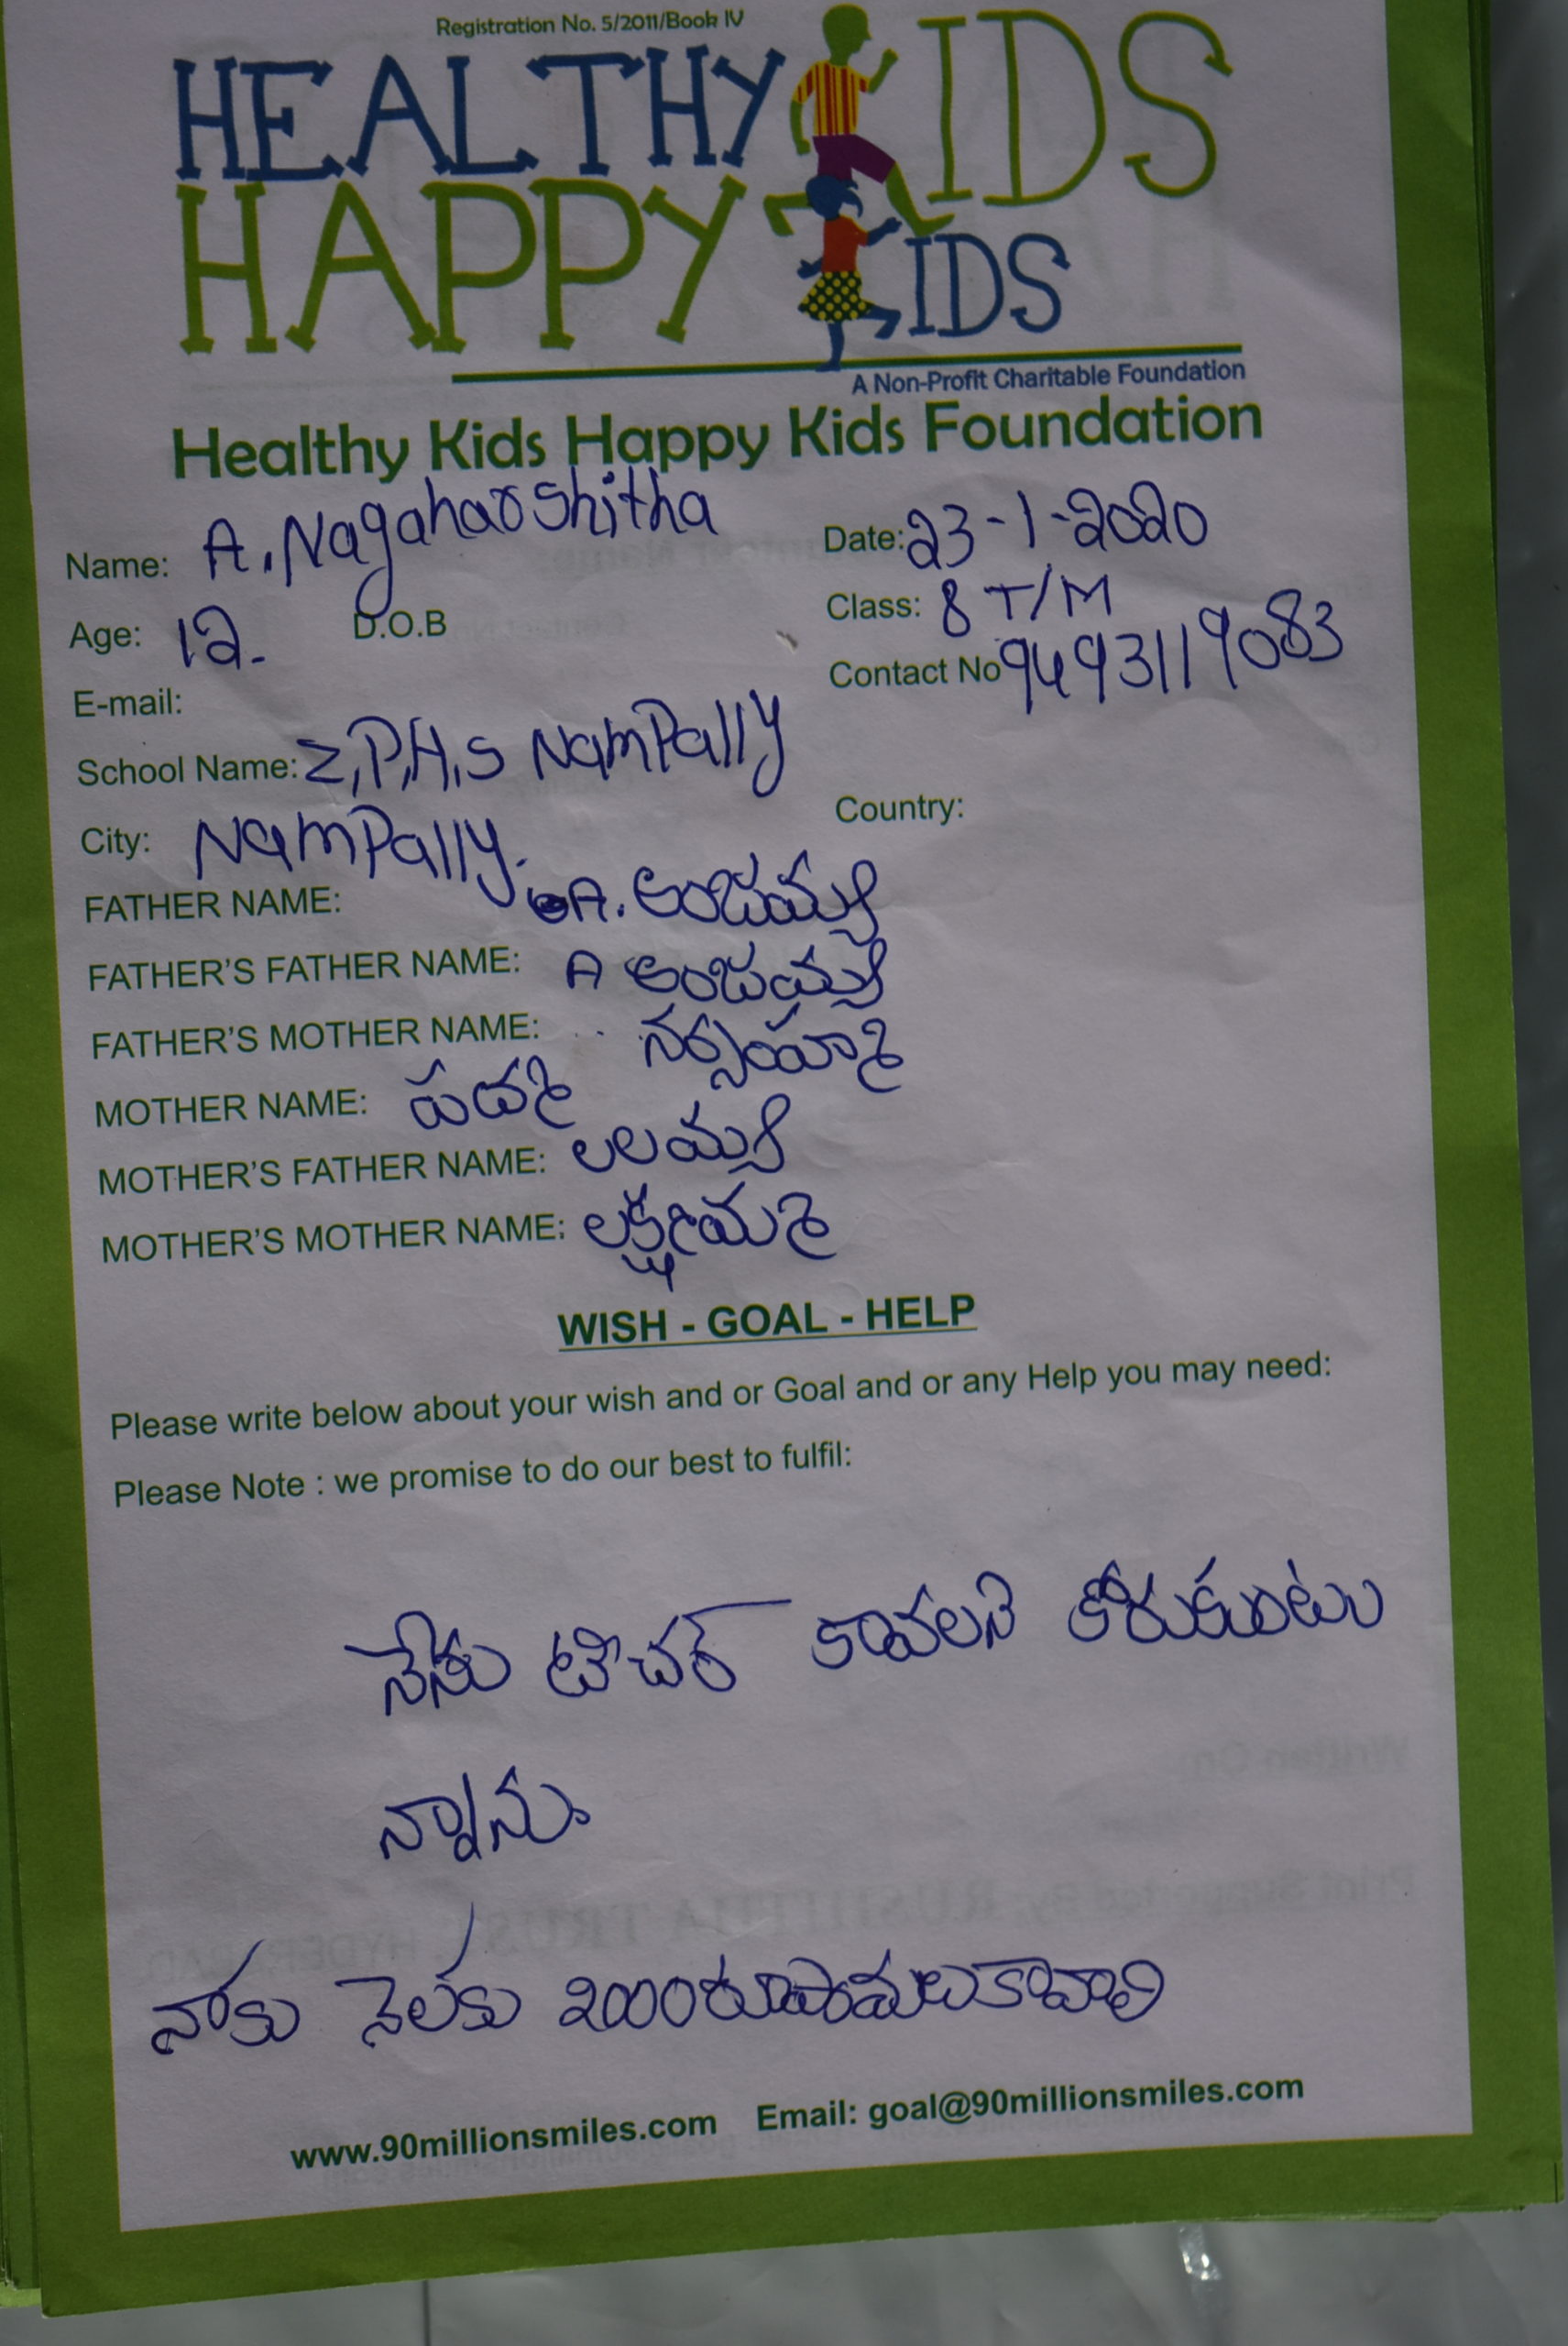 Registration No. 5/2011/Book IV
HEALTHY KIDS
HAPPY KIDS
A Non-Profit Charitable Foundation
Healthy Kids Happy Kids Foundation
Name: A. Nagaharshitha Date: 23-1-2020
Age: 12. D.O.B Class: 8 T/M
E-mail: Contact No 9493119083
School Name: Z,P,H,S NamPally
City: NamPally. Country:
FATHER NAME: A. అంజయ్య
FATHER'S FATHER NAME: A అంజయ్య
FATHER'S MOTHER NAME:
MOTHER NAME: పదమ్మ
MOTHER'S FATHER NAME: లలయ్య
MOTHER'S MOTHER NAME: లక్ష్మమ్మ
WISH - GOAL - HELP
Please write below about your wish and or Goal and or any Help you may need:
Please Note : we promise to do our best to fulfil:
నేను టీచర్ కావలని కోరుకుంటు
న్నాను
నాకు నెలకు 2000 రూపాయలు కావాలి
www.90millionsmiles.com Email: goal@90millionsmiles.com